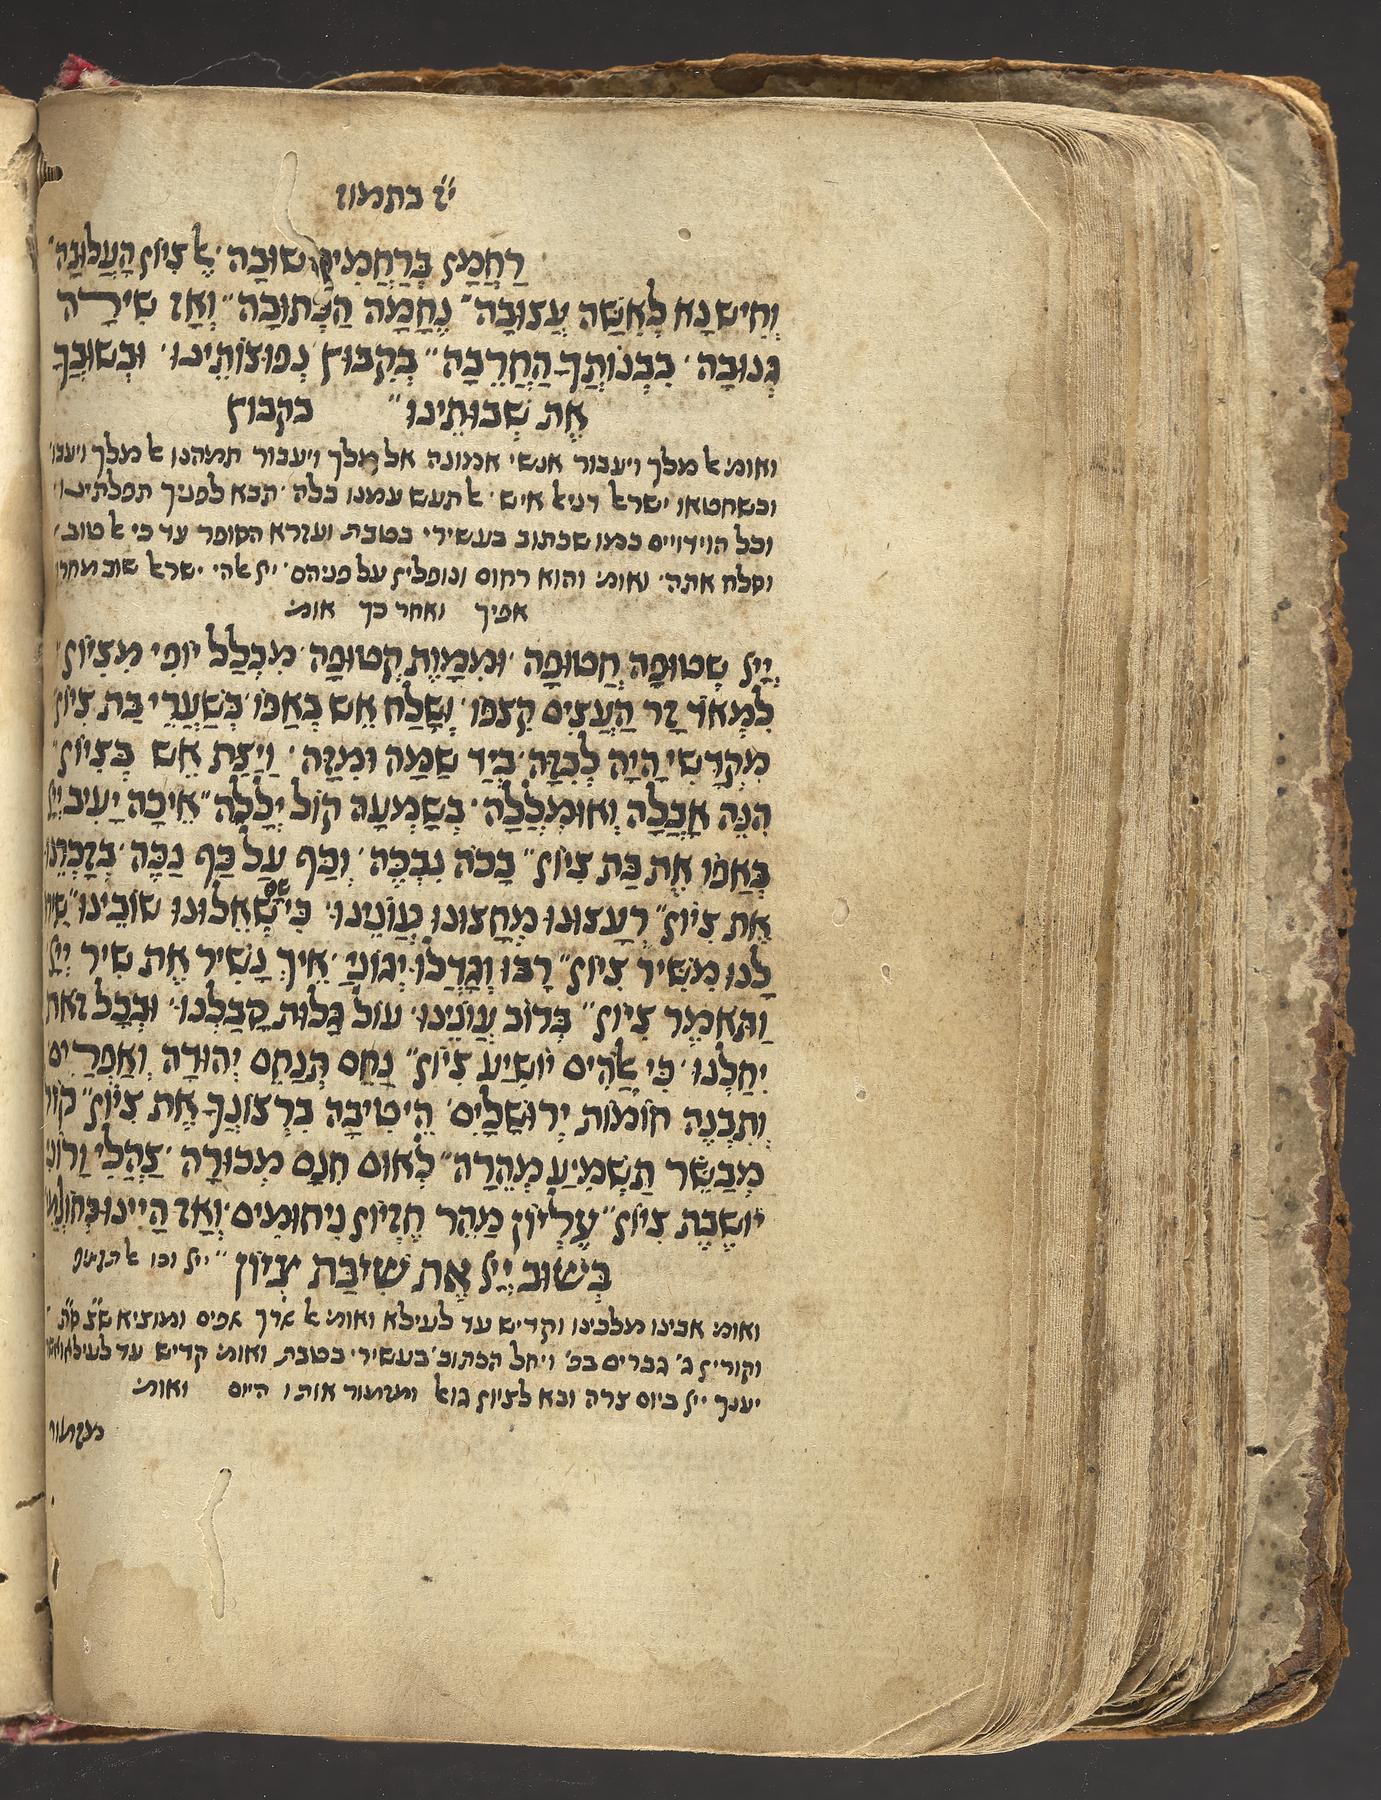 י״ז בתמוז
רַחֲמָן בְּרַחֲמִיךָ שׁוּבָה׳ אֶל צִיּוֹן הָעֲלוּבָה״
וְחִישׁ נָא לְאִשָּׁה עֲצוּבָה״ נֶחָמָה הַכְּתוּבָה״ וְאָז שִׁירָה
כִּבְנוֹתְךָ הַחֲרֵבָה״ בְּקִבּוּץ נְפוּצוֹתֵינוּ׳ וּבְשׁוּבְךָ
אֶת שְׁבוּתֵינוּ״ בקבוץ
ואומ׳ אל מלך ויעבור אנשי אמונה אל מלך ויעבור תמהנו אל מלך ויעבו׳
וכשחטאו ישראל דניאל איש׳ אל תעש עמנו כלה׳ תבא לפניך תפלתינו
וכל הוידויים כמו שכתוב בעשירי בטבת ועזרא הסופר עד כי אל טוב׳
וסלח אתה׳ ואומ׳ והוא רחום ונופלין על פניהם׳ יי׳ אלהי ישראל שוב מחרון
אפיך ואחר כך אומ׳
יְיָ שְׁטוּפָה חֲטוּפָה׳ וּמִמָּוֶת קְטוּפָה׳ מִכְלַל יוֹפִי מִצִּיּוֹן
לִמְאֹד זָר הַעֲצִים קִצְפּוֹ׳ וְשָׁלַח אֵשׁ בְּאַפּוֹ׳ בְּשַׁעֲרֵי בַּת צִיּוֹן
מִקְדָּשִׁי הָיָה לְבִזָּה׳ בְּיַד שַׁמָּה וּמִזָּה׳ וַיַּצֶּת אֵשׁ בְּצִיּוֹן״
הִנֵּה אָבְלָה וְאוּמְלְלָה׳ בְּשָׁמְעָהּ קוֹל יְלָלָה״ אֵיכָה יָעִיב יְיָ
בְּאַפּוֹ אֶת בַּת צִיּוֹן״ בָּכֹה נִבְכֶּה׳ וְכַף עַל כַּף נַכֶּה׳ בְּזָכְרֵנוּ
אֶת צִיּוֹן״ רְעָצוּנוּ מְחָצוּנוּ עֲוֹנֵינוּ׳ כִּי שָׁם שְׁאֵלוּנוּ שׁוֹבֵינוּ״ שִׁירוּ
לָנוּ מִשִּׁיר צִיּוֹן״ רָבּוּ וְגָדְלוּ יְגוֹנָי׳ אֵיךְ נָשִׁיר אֶת שִׁיר יְיָ
וַתֹּאמֶר צִיּוֹן״ בְּרוֹב עֲוֹנֵינוּ׳ עוֹל גָּלוּת קִבַּלְנוּ׳ וּבְכָל זֹאת
יִחַלְנוּ׳ כִּי אֱלֹהִים יוֹשִׁיעַ צִיּוֹן״ נַחֵם תְּנַחֵם יְהוּדָה וְאֶפְרַיִם׳
וְתִבְנֶה חוֹמוֹת יְרוּשָׁלַיִם׳ הֵיטִיבָה בִרְצוֹנְךָ אֶת צִיּוֹן״ קוֹל
מְבַשֵּׂר תַּשְׁמִיעַ מְהֵרָה״ לְאוֹם חִנָּם מְכוּרָה׳ צַהֲלִי וָרוֹנִּי
יוֹשֶׁבֶת צִיּוֹן״ עֶלְיוֹן מַהֵר חֶזְיוֹן נִיחוּמִים׳ וְאָז הָיִינוּ כְּחוֹלְמִים
בְּשׁוּב יְיָ אֶת שִׁיבַת צִיּוֹן״ יי׳ וכו
ואומ׳ אבינו מלכינו וקדיש עד לעילא ואומ׳ אל ארך אפים ומוציא ש״צ ס״ת
וקורין ג׳ גברים בפ׳ ויחל הכתוב׳ בעשירי בטבת ואומ׳ קדיש עד לעילא
יענך יי׳ ביום צרה ובא לציון גואל ומזמור אותו היום ואומ׳
מזמור